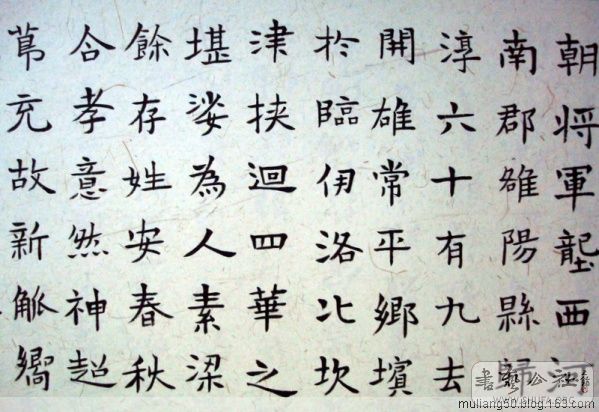 朝将軍壟西
南郡雒陽縣歸
淳六十有九去
開雄常平鄉
於臨伊洛北坎
津挟迴四華之
堪娑為人素梁
餘存姓安春秋
合孝意然神超
充故新觚
書藝公社
muliang50.blog.163.com